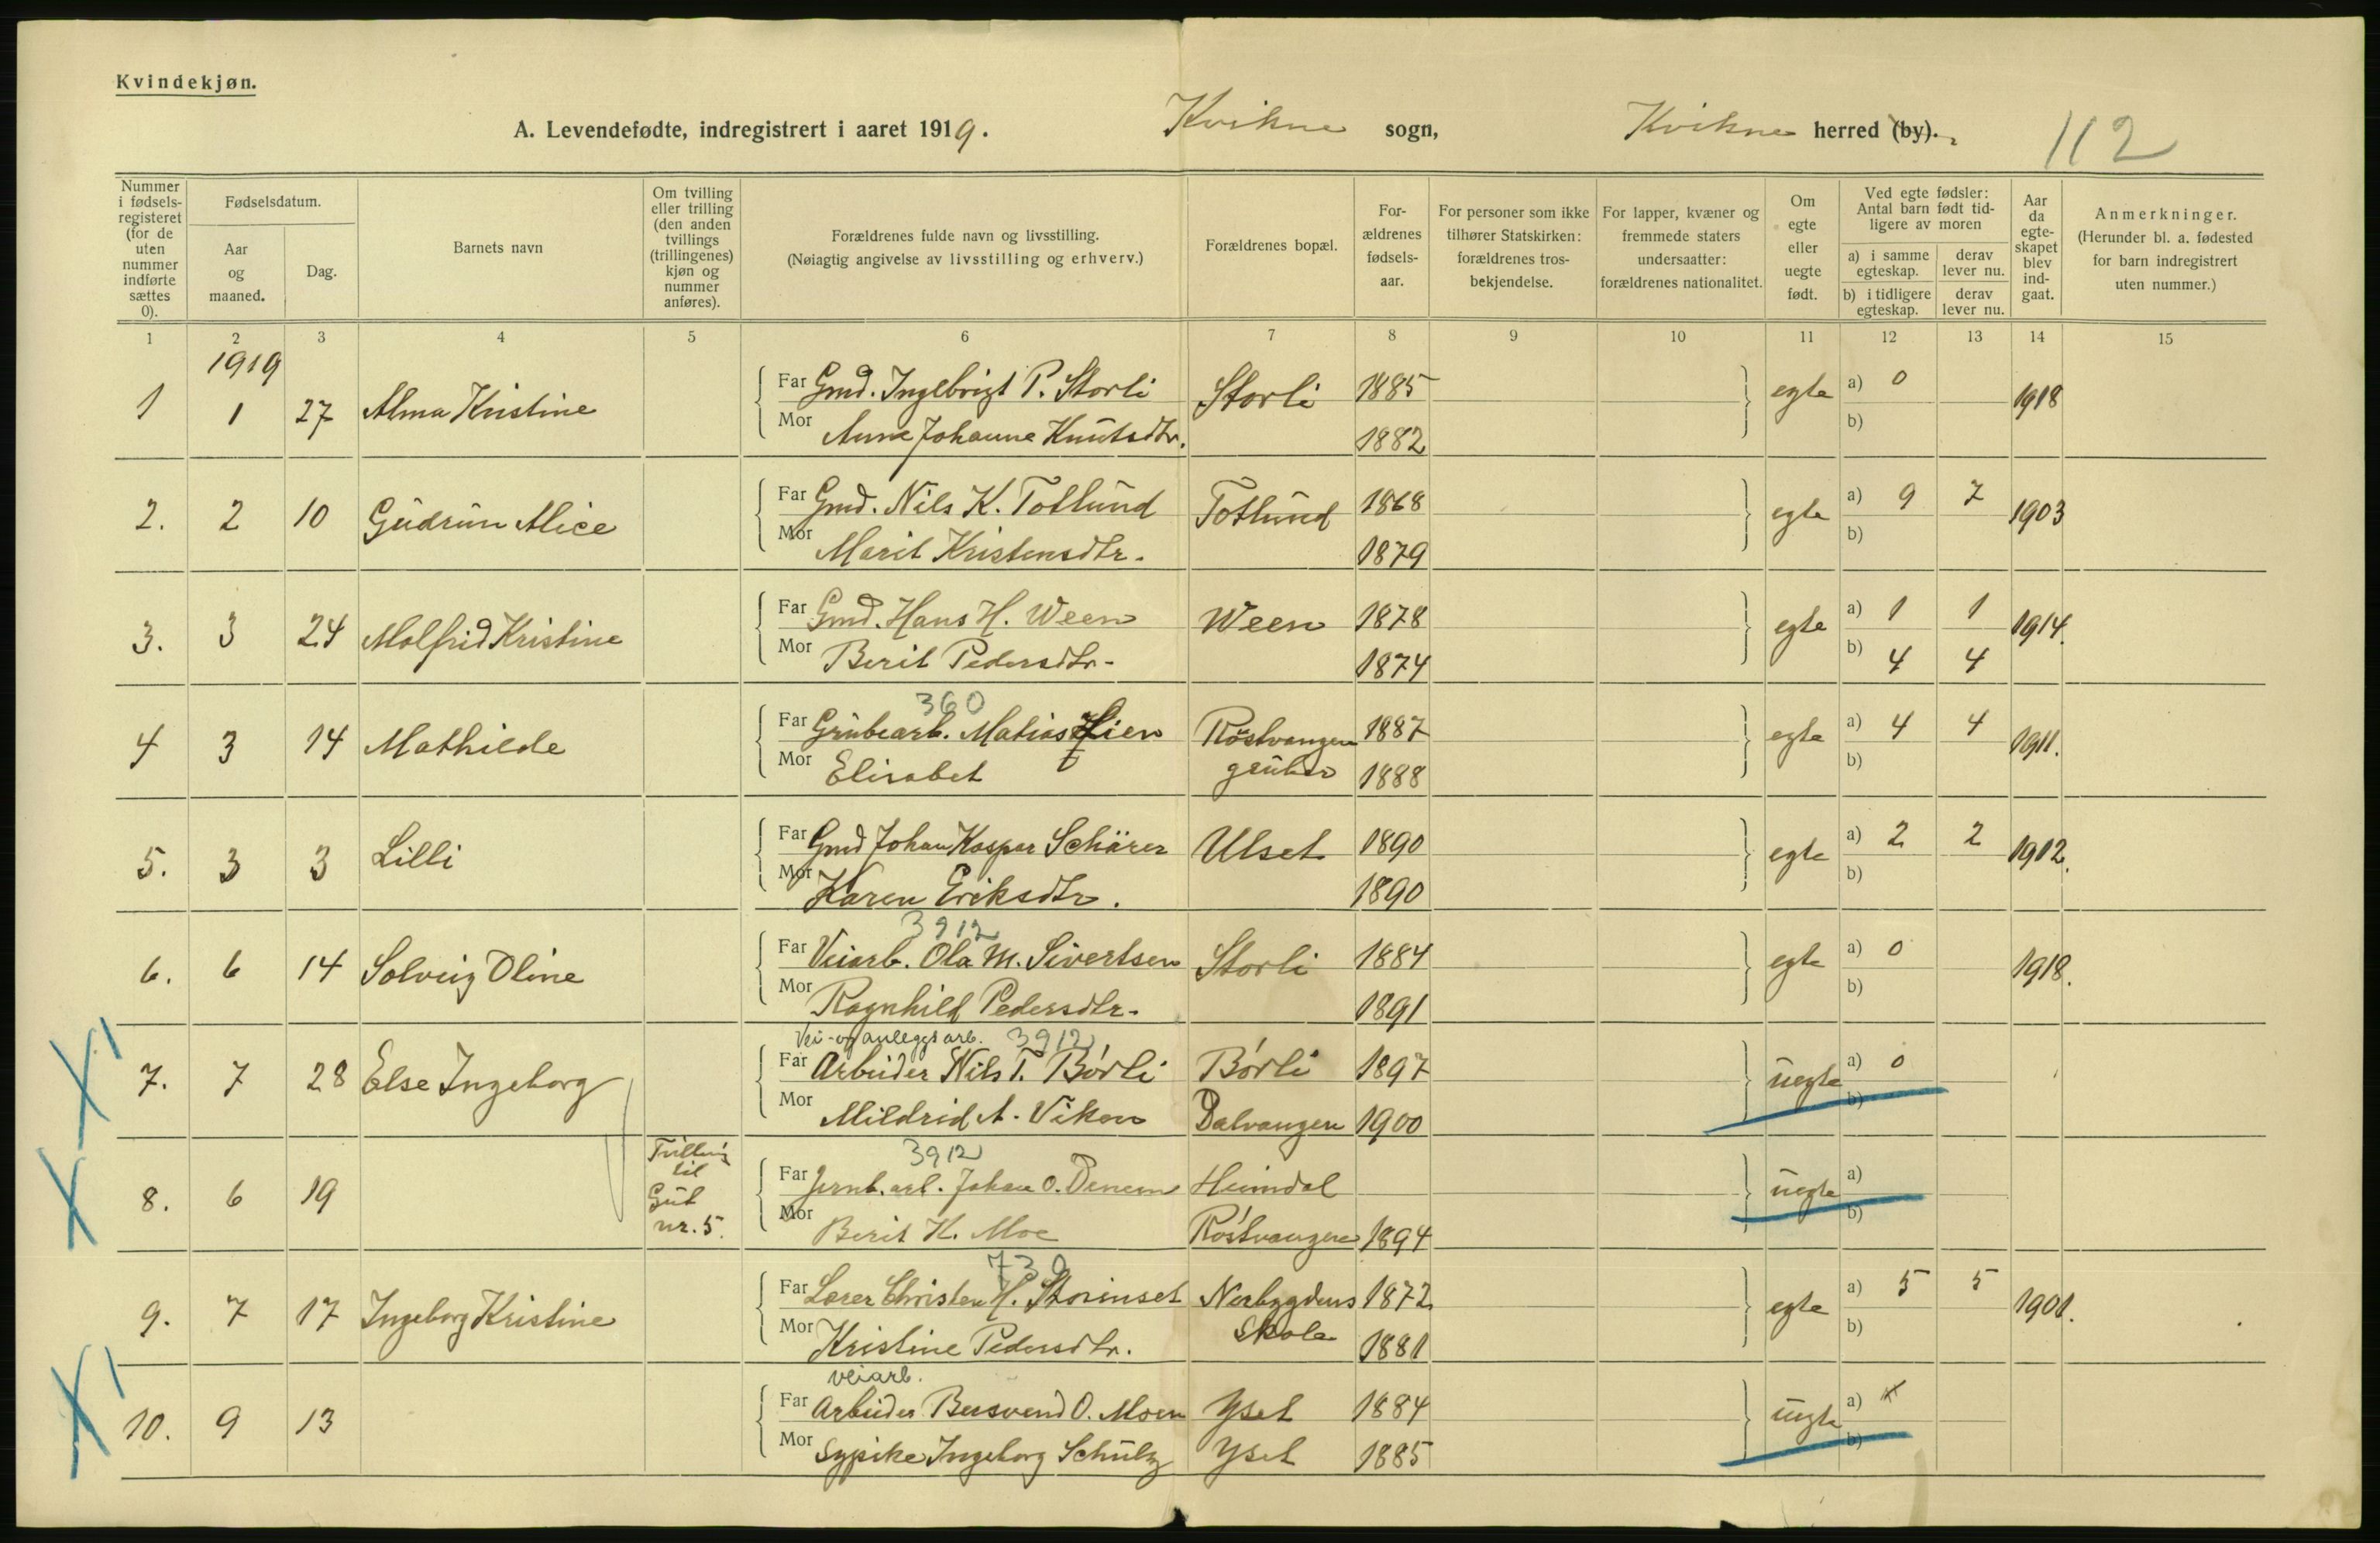 Kvindekjøn.
A. Levendefødte, indregistrert i aaret 1919. Kvikne sogn, Kvikne herred (by). 112
Nummer i fødsels-registeret (for de uten nummer indførte sættes 0).
Fødselsdatum.
Aar og maaned.
Dag.
Barnets navn
Om tvilling eller trilling (den anden tvillings (trillingenes) kjøn og nummer anføres).
Forældrenes fulde navn og livsstilling.
(Nøiagtig angivelse av livsstilling og erhverv.)
Forældrenes bopæl.
For-ældrenes fødsels-aar.
For personer som ikke tilhører Statskirken: forældrenes tros-bekjendelse.
For lapper, kvæner og fremmede staters undersaatter: forældrenes nationalitet.
Om egte eller uegte født.
Ved egte fødsler: Antal barn født tid-ligere av moren
a) i samme egteskap. derav lever nu.
b) i tidligere egteskap. derav lever nu.
Aar da egte-skapet blev ind-gaat.
Anmerkninger.
(Herunder bl. a. fødested for barn indregistrert uten nummer.)
1 2 3 4 5 6 7 8 9 10 11 12 13 14 15
1919
1 1 27 Alma Kristine Far Gmd. Ingebrigt P. Storli Storli 1885 egte a) 0 1918
Mor Anne Johanne Knutsdtr. 1882 b)
2. 2 10 Gudrun Alice Far Gmd. Nils K. Totlund Totlund 1868 egte a) 9 7 1903
Mor Marit Kristensdtr. 1879 b)
3. 3 24 Molfrid Kristine Far Gmd. Hans H. Ween Ween 1878 egte a) 1 1 1914.
Mor Berit Pedersdtr. 1874 b) 4 4
360
4 3 14 Mathilde Far Grubearb. Matias Lien Röstvangen 1887 egte a) 4 4 1911.
Mor Elisabet gruber 1888 b)
5. 3 3 Lilli Far Gmd Johan Kaspar Schärer Ulset 1890 egte a) 2 2 1912.
Mor Karen Eriksdtr. 1890 b)
3912
6. 6 14 Solveig Oline Far Veiarb. Ola M. Sivertsen Storli 1884 egte a) 0 1918.
Mor Ragnhild Pedersdtr. 1891 b)
Vei- og anleggsarb. 3912
7. 7 28 Else Ingeborg Far Arbeider Nils T. Börli Börli 1897 uegte a) 0
Mor Mildrid A. Viken Dalvangen 1900 b)
3912
8. 6 19 Tvilling til Gut nr. 5. Far Jernb. arb. Johan O. Heimdal uegte a)
Mor Berit H. Moe Röstvangen 1894 b)
730
9. 7 17 Ingeborg Kristine Far Lærer Christen H. Storinset Nerbygdens 1872 egte a) 5 5 1901.
Mor Kristine Pedersdtr. Skole 1881 b)
veiarb.
10. 9 13 Far Arbeider Bersvend O. Moen Yset 1884 uegte a)
Mor Sypike Ingeborg Schulz Yset 1885 b)